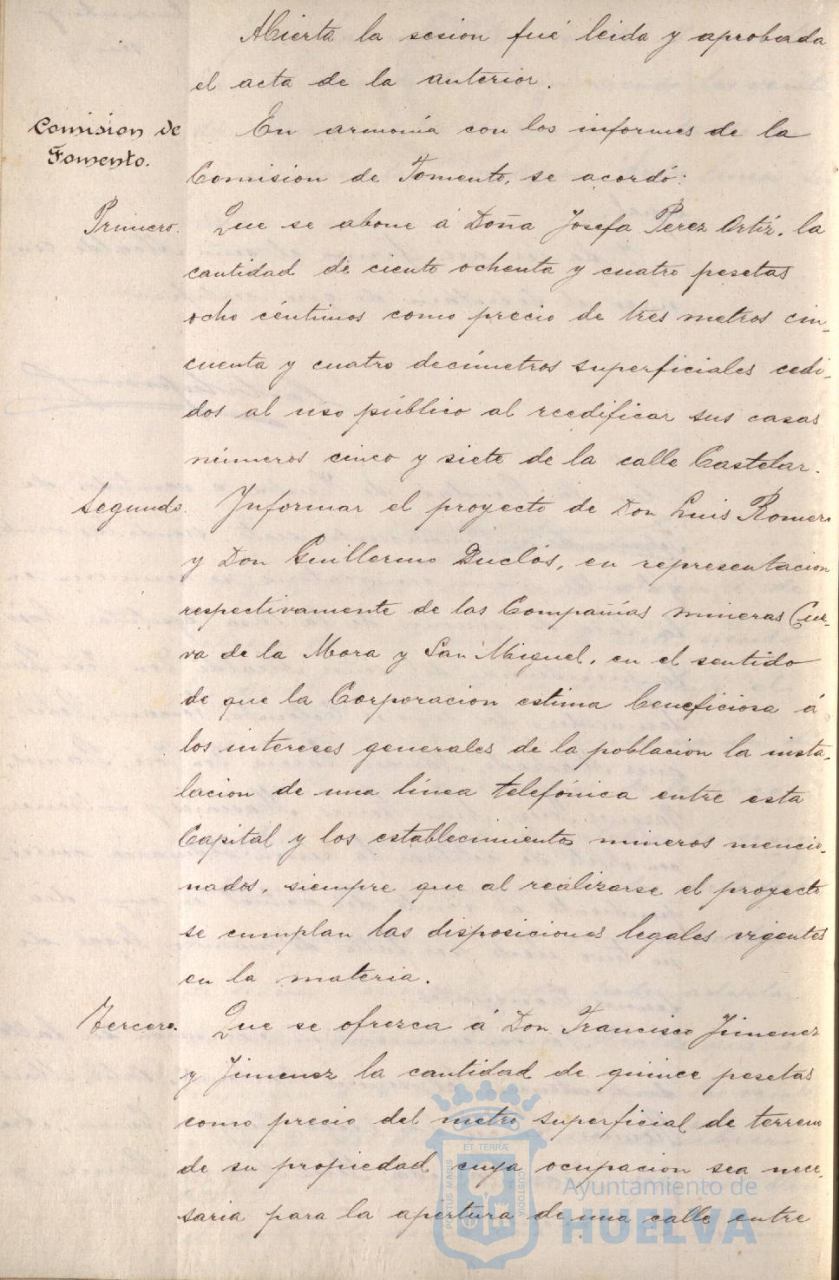 Abierta la sesion fué leida y aprobada
el acta de la anterior.
Comision de
Fomento.
En armonía con los informes de la
Comision de Fomento, se acordó:
Primero.
Que se abone á Doña Josefa Perez Ortiz, la
cantidad de ciento ochenta y cuatro pesetas
ocho céntimos como precio de tres metros cin-
cuenta y cuatro decímetros superficiales cedi-
dos al uso público al reedificar sus casas
números cinco y siete de la calle Castelar.
Segundo.
Informar el proyecto de Don Luis Romero
y Don Guillermo Duclós, en representacion
respectivamente de las Compañías mineras Cue-
va de la Mora y San Miguel, en el sentido
de que la Corporacion estima beneficiosa á
los intereses generales de la poblacion la insta-
lacion de una línea telefónica entre esta
Capital y los establecimientos mineros mencio-
nados, siempre que al realizarse el proyecto
se cumplan las disposiciones legales vigentes
en la materia.
Tercero.
Que se ofrezca á Don Francisco Jimenez
y Jimenez la cantidad de quince pesetas
como precio del metro superficial de terreno
de su propiedad cuya ocupacion sea nece-
saria para la apertura de una calle entre
PORTUS MARIS
ET TERRÆ
CUSTODIA
Ayuntamiento de
HUELVA